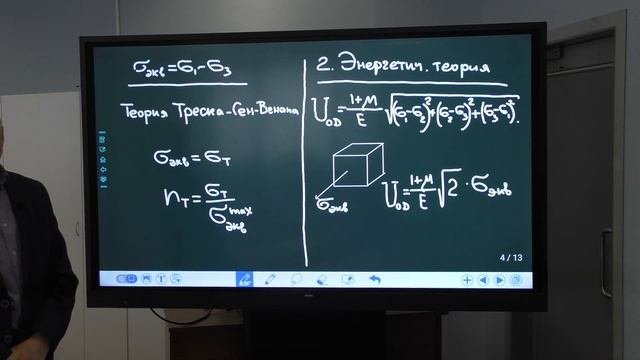 σ_экв = σ₁ - σ₃
Теория Треска-Сен-Венана
σ_экв = σ_T
n_T = σ_T / σ_экв^max
2. Энергетич. теория
U_оD = (1+μ)/E √((σ₁-σ₂)²+(σ₂-σ₃)²+(σ₃-σ₁)²).
σ_экв
U_оD = (1+μ)/E √2 · σ_экв
4 / 13